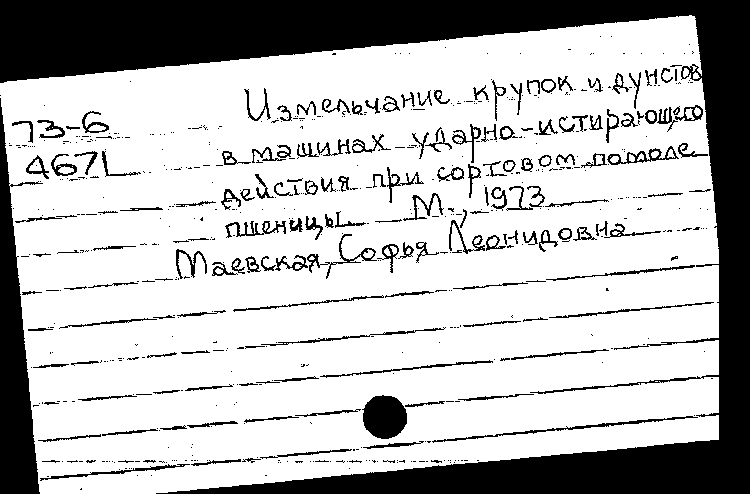 Измельчание крупок и дунстов
73-6
в машинах ударно-истирающего
4671
действия при сортовом помоле
пшеницы. М., 1973.
Маевская, Софья Леонидовна.